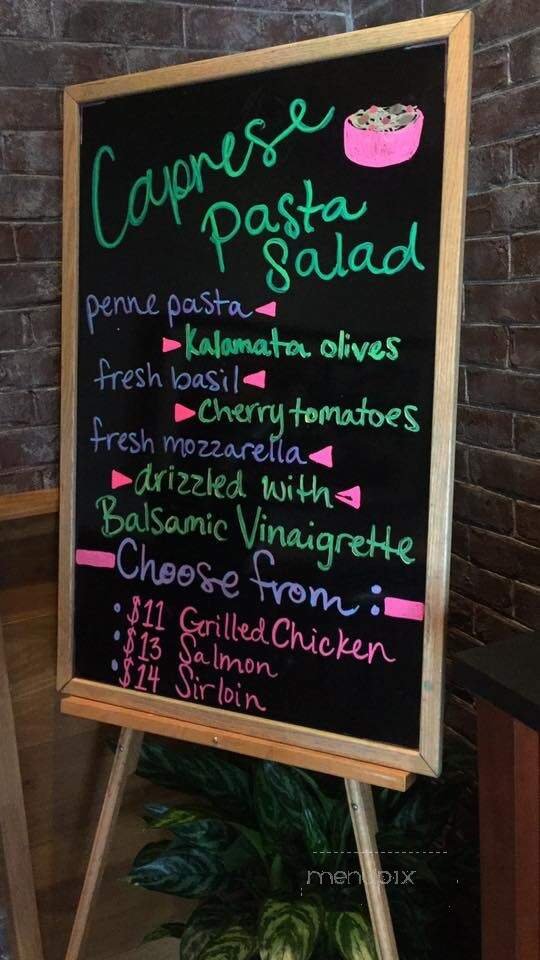 Caprese
Pasta
Salad
penne pasta
Kalamata olives
fresh basil
Cherry tomatoes
fresh mozzarella
drizzled with
Balsamic Vinaigrette
Choose from:
• $11 Grilled Chicken
• $13 Salmon
• $14 Sirloin
menupix